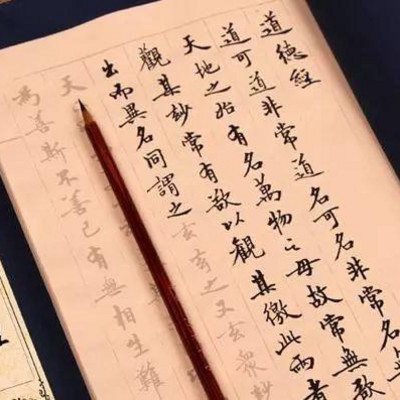 道德經
道可道非常道名可名非常名
天地之始有名萬物之母故常無欲
觀其妙常有欲以觀其徼此兩者
出而異名同謂之玄玄之又玄眾妙
天
為善斯不善已有無相生難